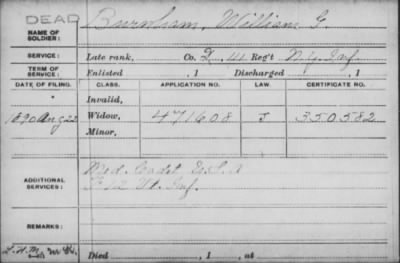 DEAD
NAME OF SOLDIER: Burnham, William G.
SERVICE: Late rank, Co. D, 141 Reg't N.Y. Inf.
TERM OF SERVICE: Enlisted , 1 Discharged , 1
DATE OF FILING. CLASS. APPLICATION NO. LAW. CERTIFICATE NO.
Invalid,
1890 Aug 22 Widow, 471608 J 350582
Minor,
ADDITIONAL SERVICES: Med. Cadet, U.S.A
F 12 Vt. Inf.
REMARKS:
Died , 1 , at